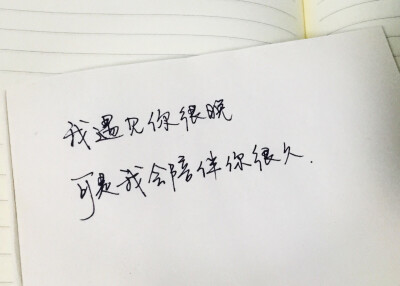 我遇见你很晚
可是我会陪伴你很久.